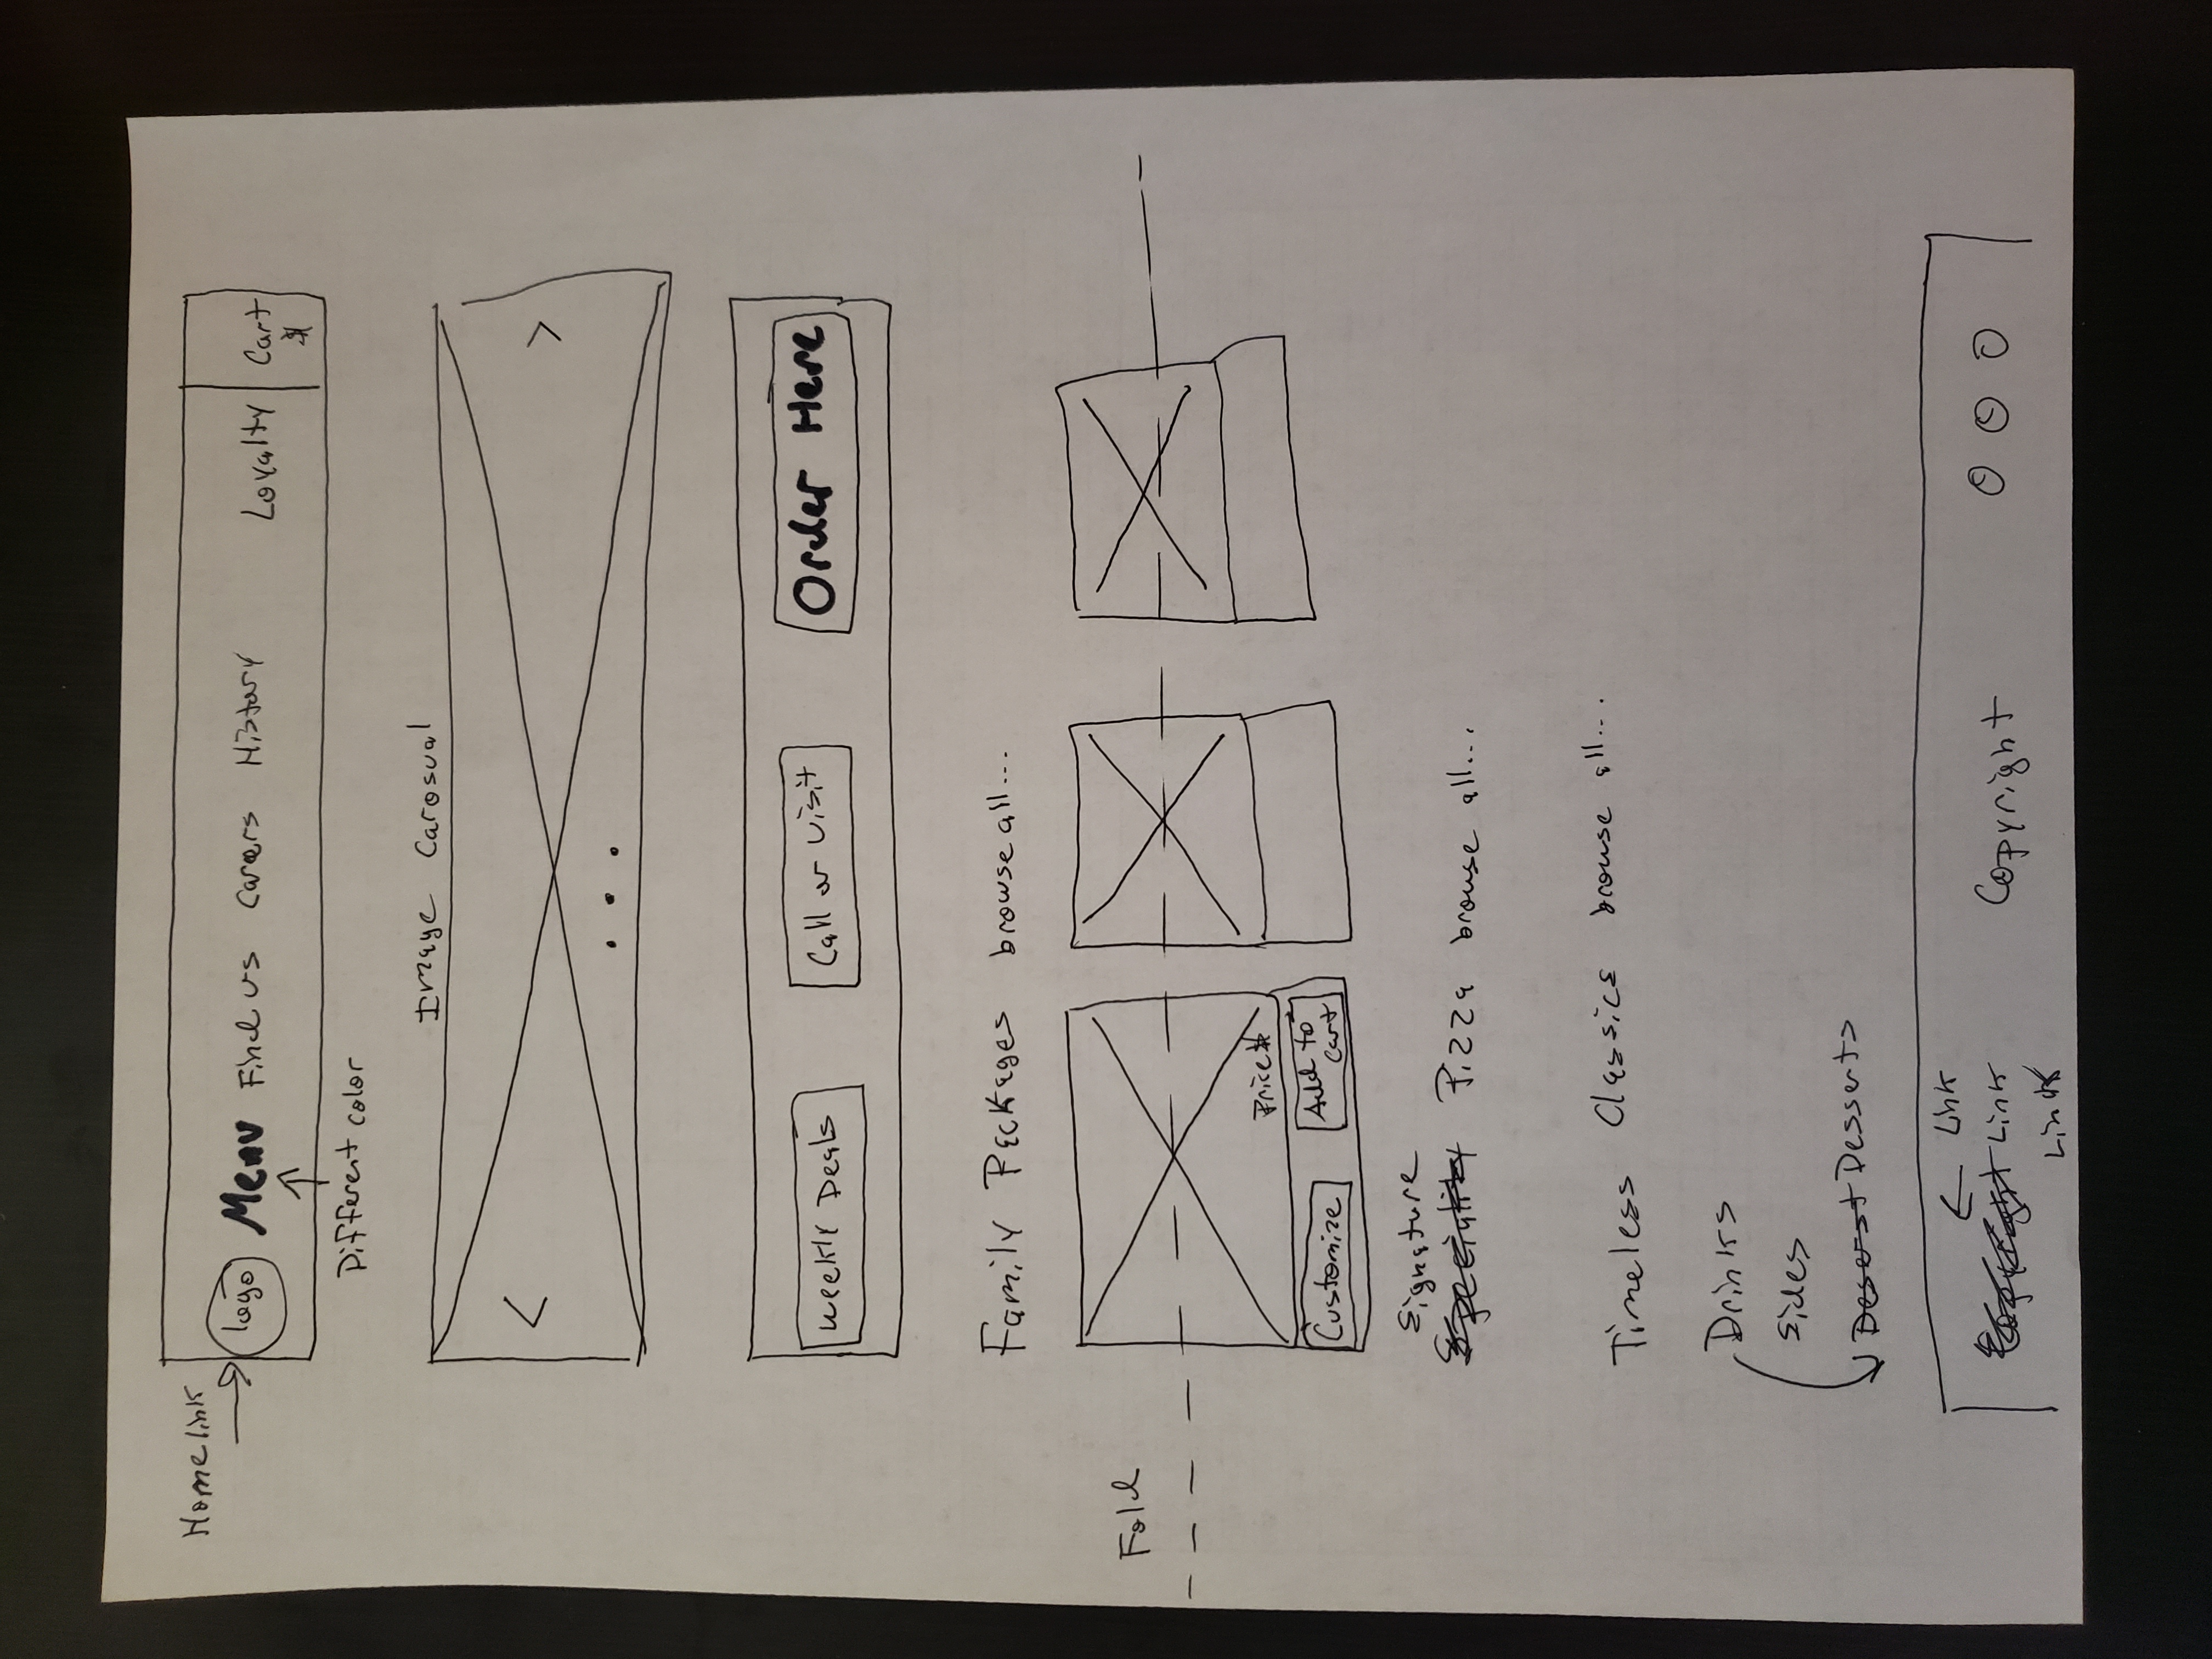 Home link
logo Menu Find us Careers History Loyalty Cart
$
Different color
Image Carosual
< >
Weekly Deals Call or Visit Order Here
Family Packages browse all...
Fold
Price $
Customize Add to
Cart
Signature
Speciality Pizza browse all...
Timeless Classics browse all...
Drinks
Sides
Deserst Desserts
Link
Copyright Link Copyright
Link